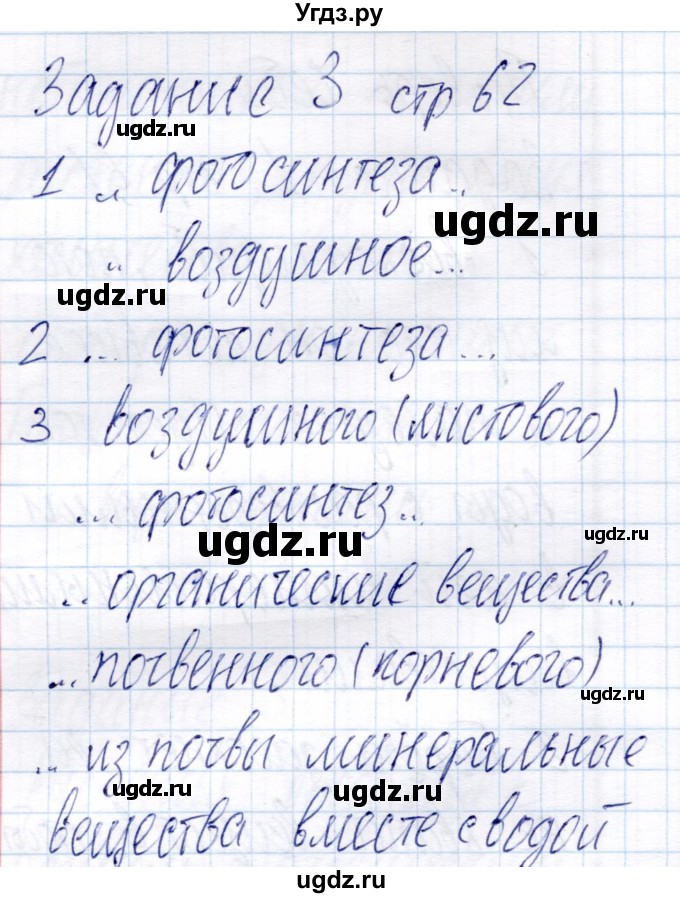 Угдз.ру
Задание 3 стр 62
ugdz.ru
1 .. фотосинтеза..
ugdz.ru
.. воздушное...
ugdz.ru
2 ... фотосинтеза...
3 воздушного (листового)
... фотосинтез..
ugdz.ru
ugdz.ru
.. органические вещества...
... почвенного (корневого)
ugdz.ru
.. из почвы минеральные
ugdz.ru
ugdz.ru
вещества вместе с водой
ugdz.ru